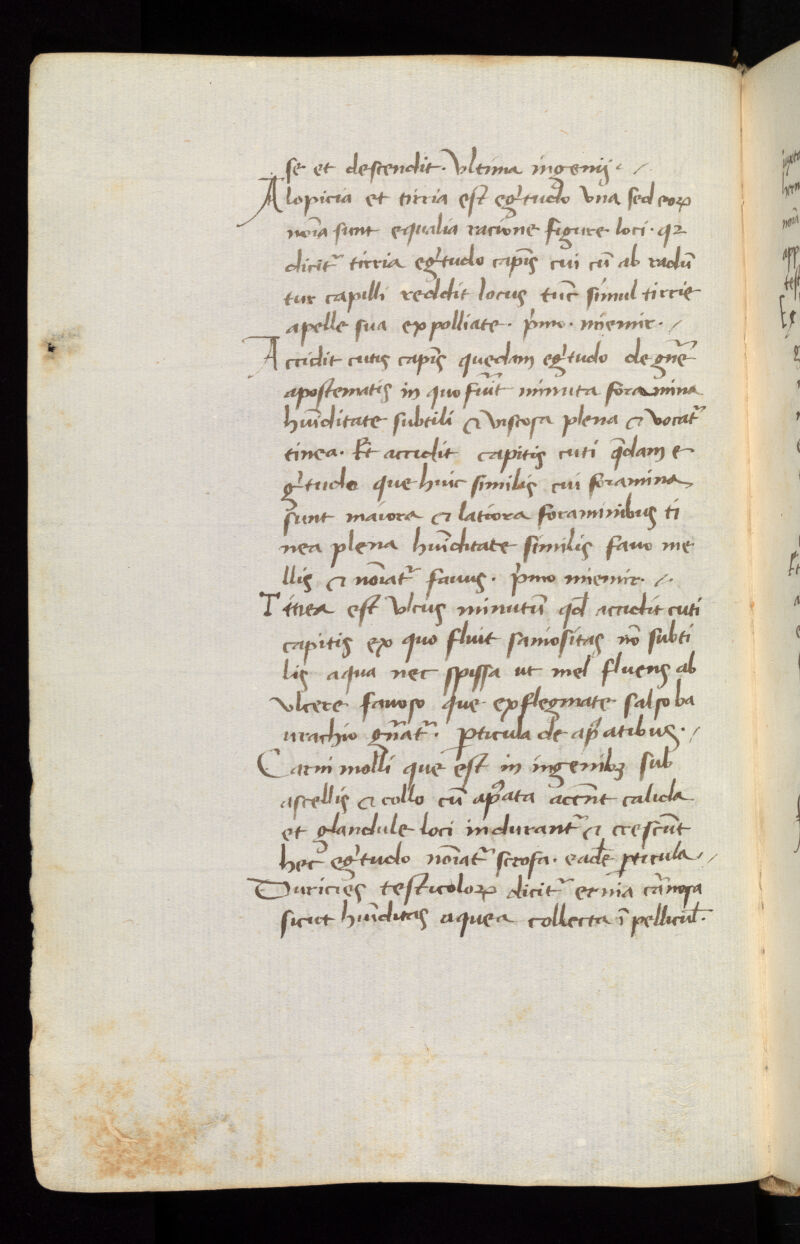 se et descendit. Vltima ingenij.
Alopicia et tirria est egr̄tudo vna sed eoꝝ
noīa sunt equalia racione figure loci. qꝛ
dicit᷑ tirria egr̄tudo capīs cui cū ab radū
tur capilli reddit locus tūc simul tirrie
a pelle sua expolliate. p̄mo.
Accidit cutis capīs quedam egr̄tudo de gn̄e
apostematis in quo fiūt minuta foramina
hūiditate subtili & viscosa plena & vocat᷑
tinea. Et accidit capitis cuti q̄dam e
gr̄tudo que huic similis cui foramina
sunt maiora & latiora foraminibus ti
nea plena hūiditate similis fauo me
llis & noīat᷑ fauus. p̄mo
Tinea est vlcus minutū qd̄ accidit cuti
capitis ex quo fluit saniositas nō subti
lis aqua nec spissa ut mel fluens ab
vlcere fauoso que ex flegmate salso ba
urachio gn̄at᷑. ꝑticula de ap̄atibus.
Carni molli que est in ingenibꝫ sub
ascellis & collo cū ap̄ata accn̄t calida
et glandule loci indurant᷑ & crescūt
hec egr̄tudo noīat᷑ scrofa. eadē ꝑticula
Duricies testicoloꝝ dicit᷑ ernia cārnosa
sicut hūiditas aquea collecta ī pellicul̄.